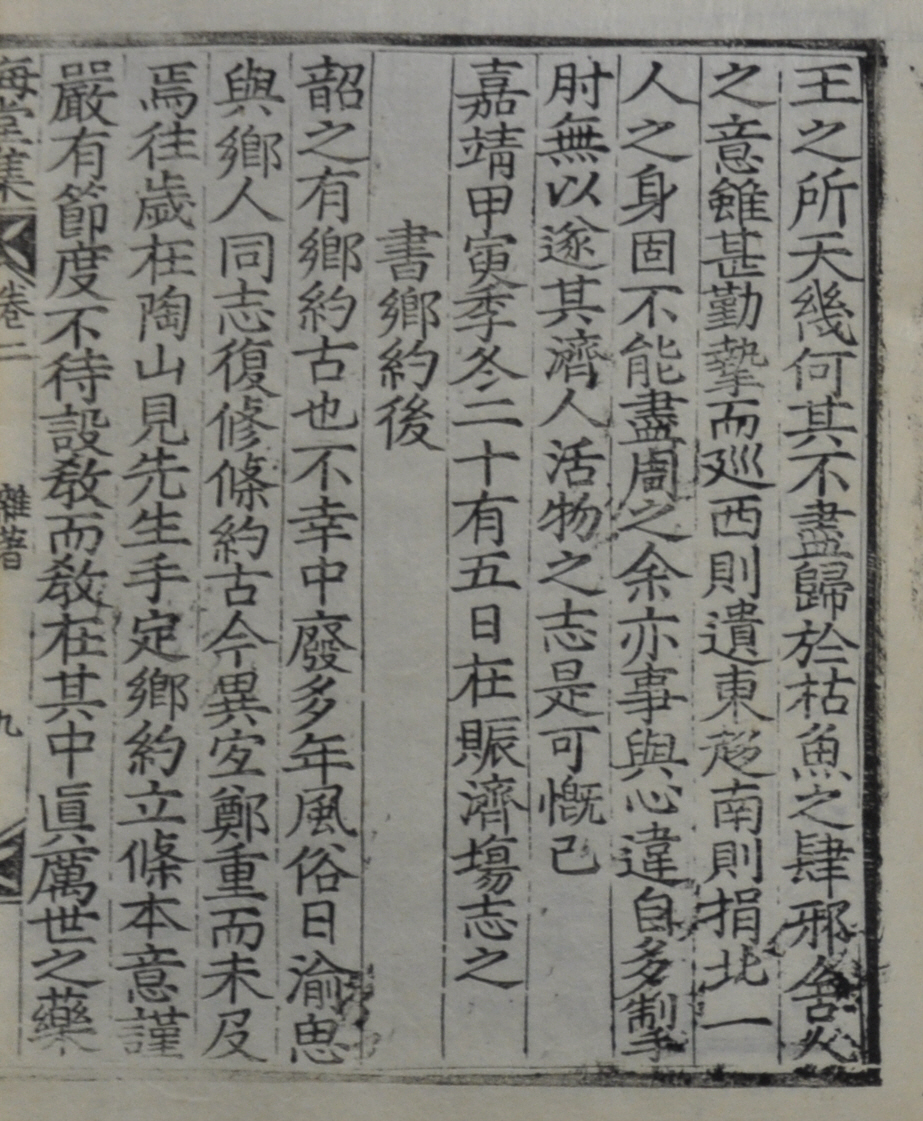 王之所天幾何其不盡歸於枯魚之肆邪食火
之意雖甚勤摯而廵西則遺東趍南則捐北一
人之身固不能盡周之余亦事與心違自多掣
肘無以遂其濟人活物之志是可慨已
嘉靖甲寅季冬二十有五日在賑濟塲志之
書鄉約後
韶之有鄉約古也不幸中廢多年風俗日渝思
與鄉人同志復修條約古今異宐鄭重而未及
焉往歲在陶山見先生手定鄉約立條本意謹
嚴有節度不待設敎而敎在其中眞厲世之藥
梅堂集 卷二 雜著 九